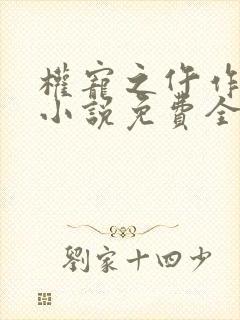 權寵之仵作
小說免費全
劉家十四少